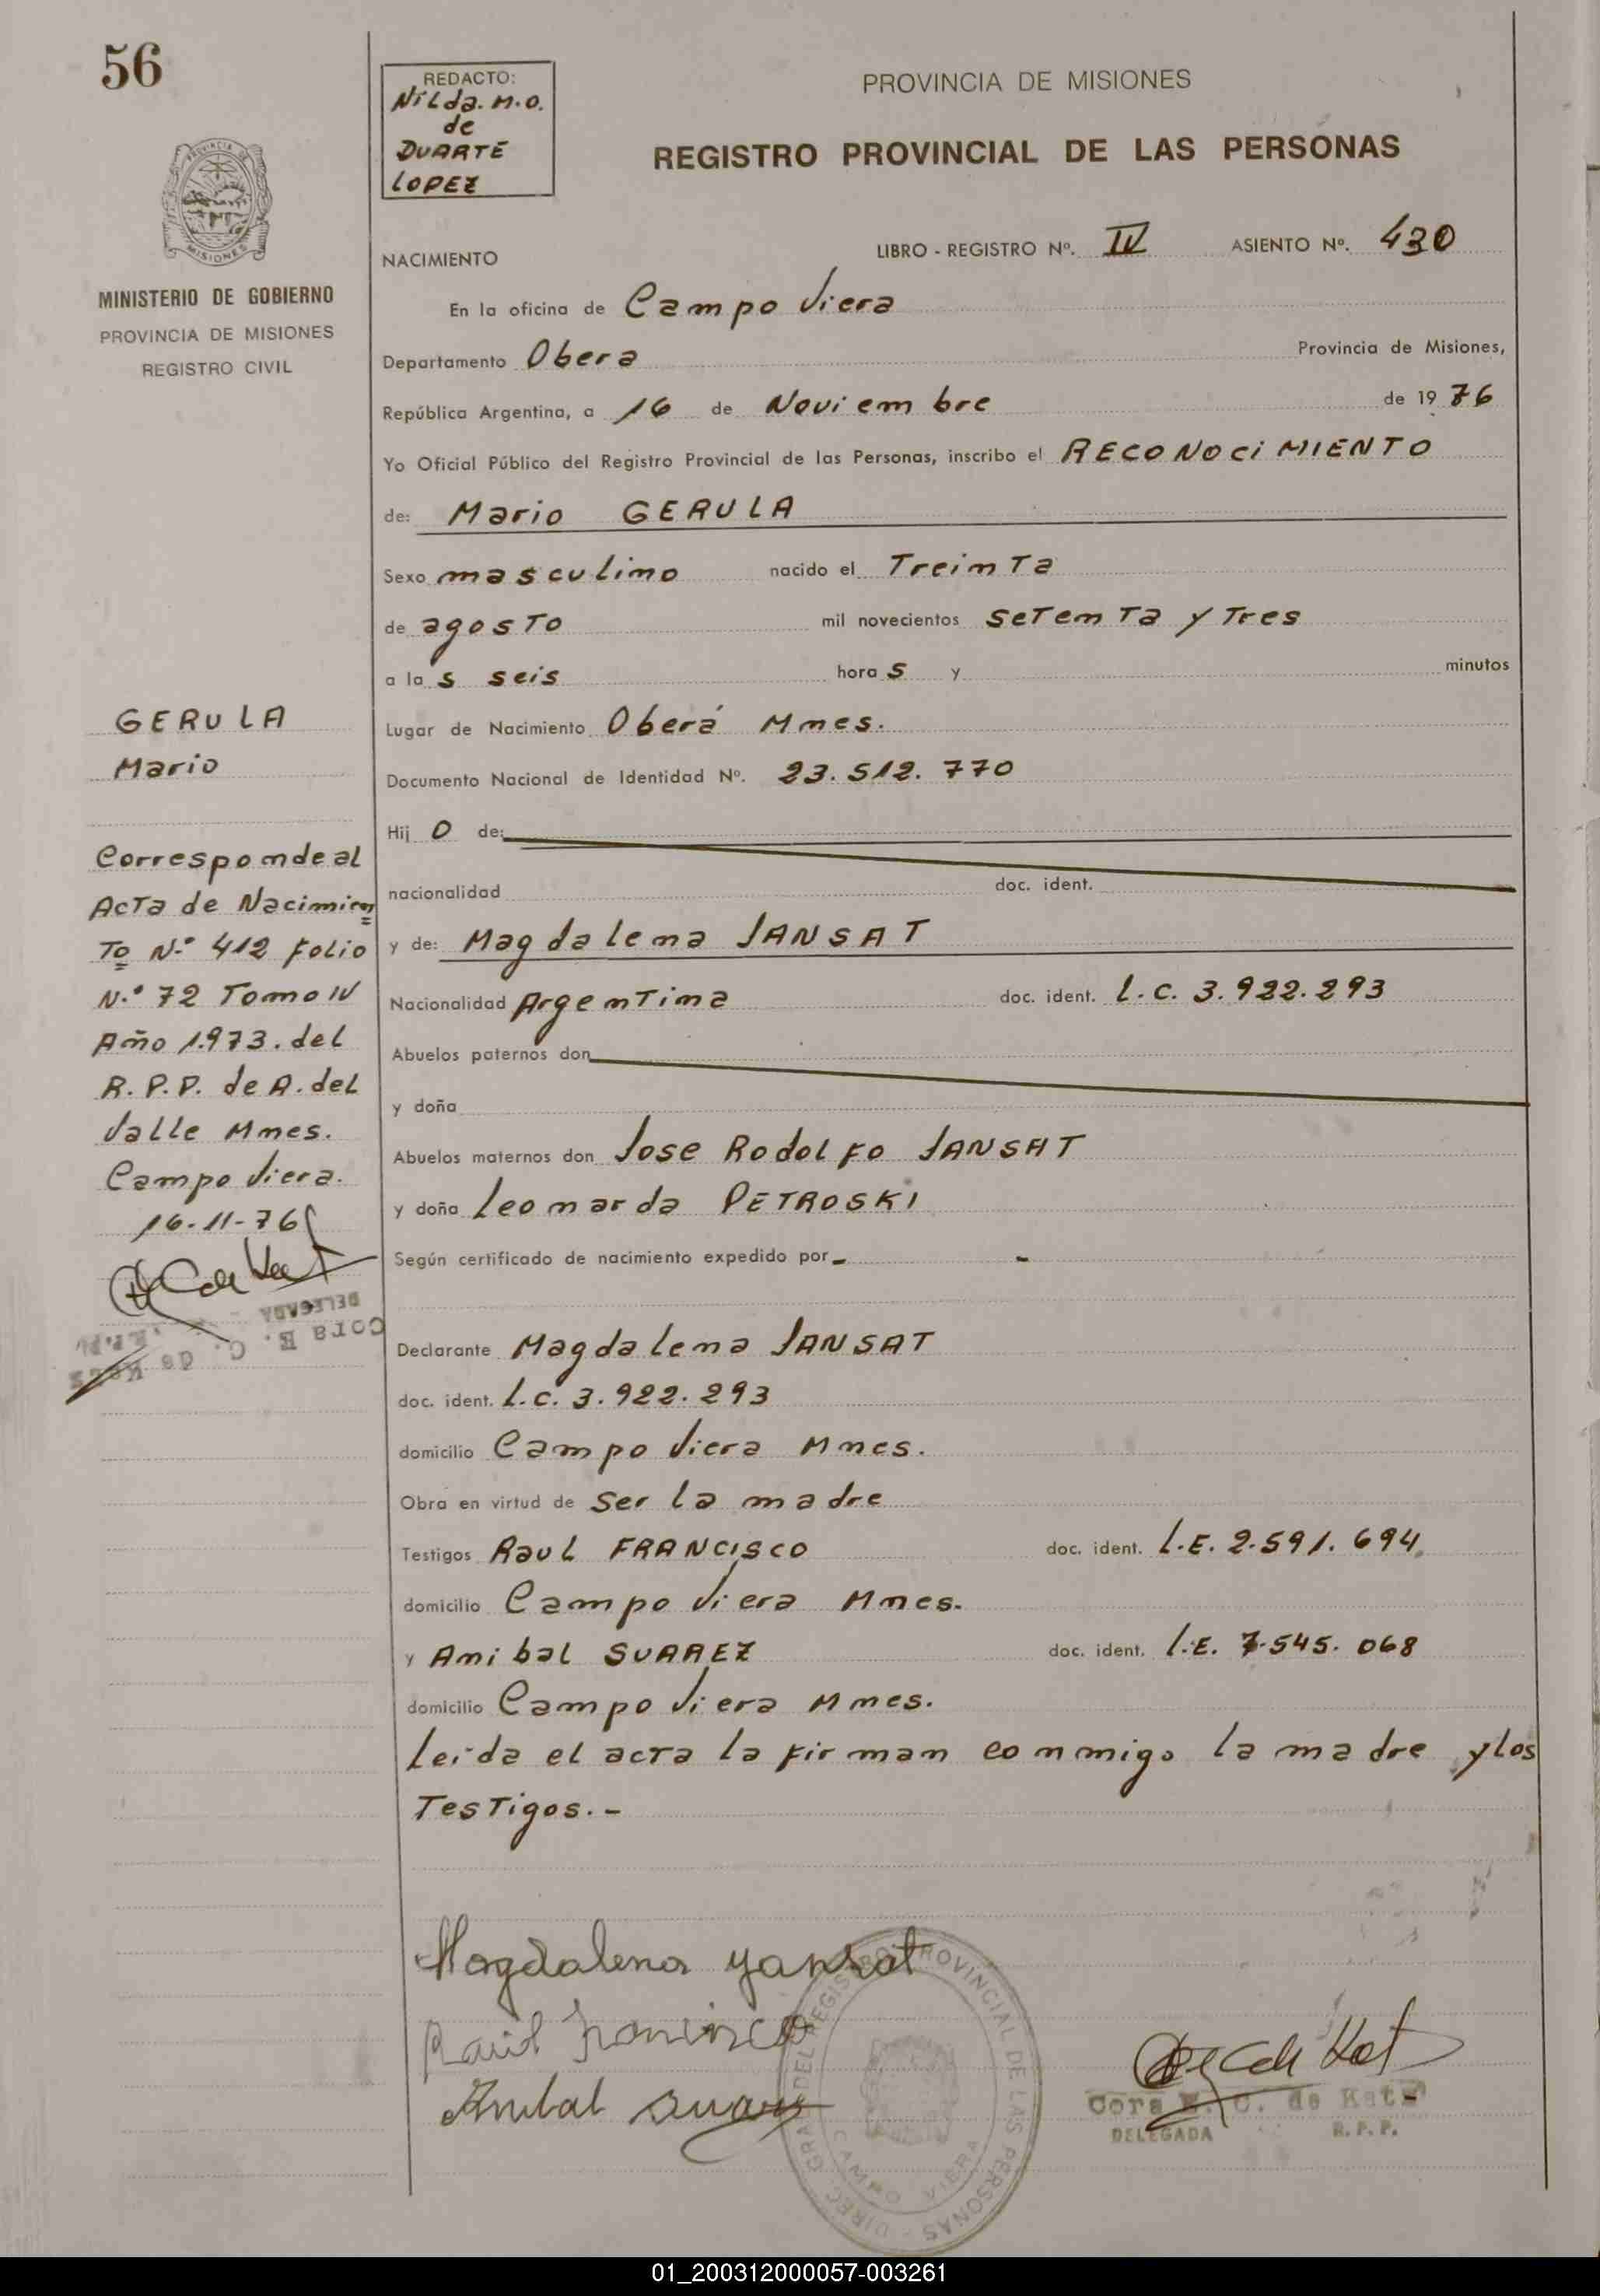 56
REDACTO:
Nilda. M.O.
de
DUARTE
LOPEZ
PROVINCIA DE MISIONES
REGISTRO PROVINCIAL DE LAS PERSONAS
MINISTERIO DE GOBIERNO
PROVINCIA DE MISIONES
REGISTRO CIVIL
NACIMIENTO LIBRO - REGISTRO Nº. IV ASIENTO Nº. 430
En la oficina de Campo Viera
Departamento Obera Provincia de Misiones,
República Argentina, a 16 de Noviembre de 1976
Yo Oficial Público del Registro Provincial de las Personas, inscribo el RECONOCiMIENTO
de: Mario GERULA
Sexo masculino nacido el Treinta
de agosto mil novecientos setenta y Tres
a las seis horas y minutos
Lugar de Nacimiento Oberá Mnes.
Documento Nacional de Identidad Nº. 23.512.770
Hijo de:
nacionalidad doc. ident.
y de: Magdalena JANSAT
Nacionalidad Argentina doc. ident. L.C. 3.922.293
Abuelos paternos don
y doña
Abuelos maternos don Jose Rodolfo JANSAT
y doña Leonarda PETROSKI
Según certificado de nacimiento expedido por - -
Declarante Magdalena JANSAT
doc. ident. L.C. 3.922.293
domicilio Campo Viera Mnes.
Obra en virtud de ser la madre
Testigos Raul FRANCISCO doc. ident. L.E. 2.591.694.
domicilio Campo Viera Mnes.
y Anibal SUAREZ doc. ident. L.E. 7.545.068
domicilio Campo Viera Mnes.
Leida el acta la firman conmigo la madre y los
Testigos.-
GERULA
Mario
Corresponde al
Acta de Nacimien
To N.º 412 Folio
N.º 72 Tomo IV
Año 1.973. del
R.P.P. de A. del
Valle Mnes.
Campo Viera.
16-11-76
DELEGADA
Cora E. C. de Katz
Magdalena Yansat
Raúl Francisco
Anibal Suarez
DIREC. GRAL. DEL REGISTRO PROVINCIAL DE LAS PERSONAS
CAMPO VIERA
Cora E. C. de Katz
DELEGADA R.P.P.
01_200312000057-003261